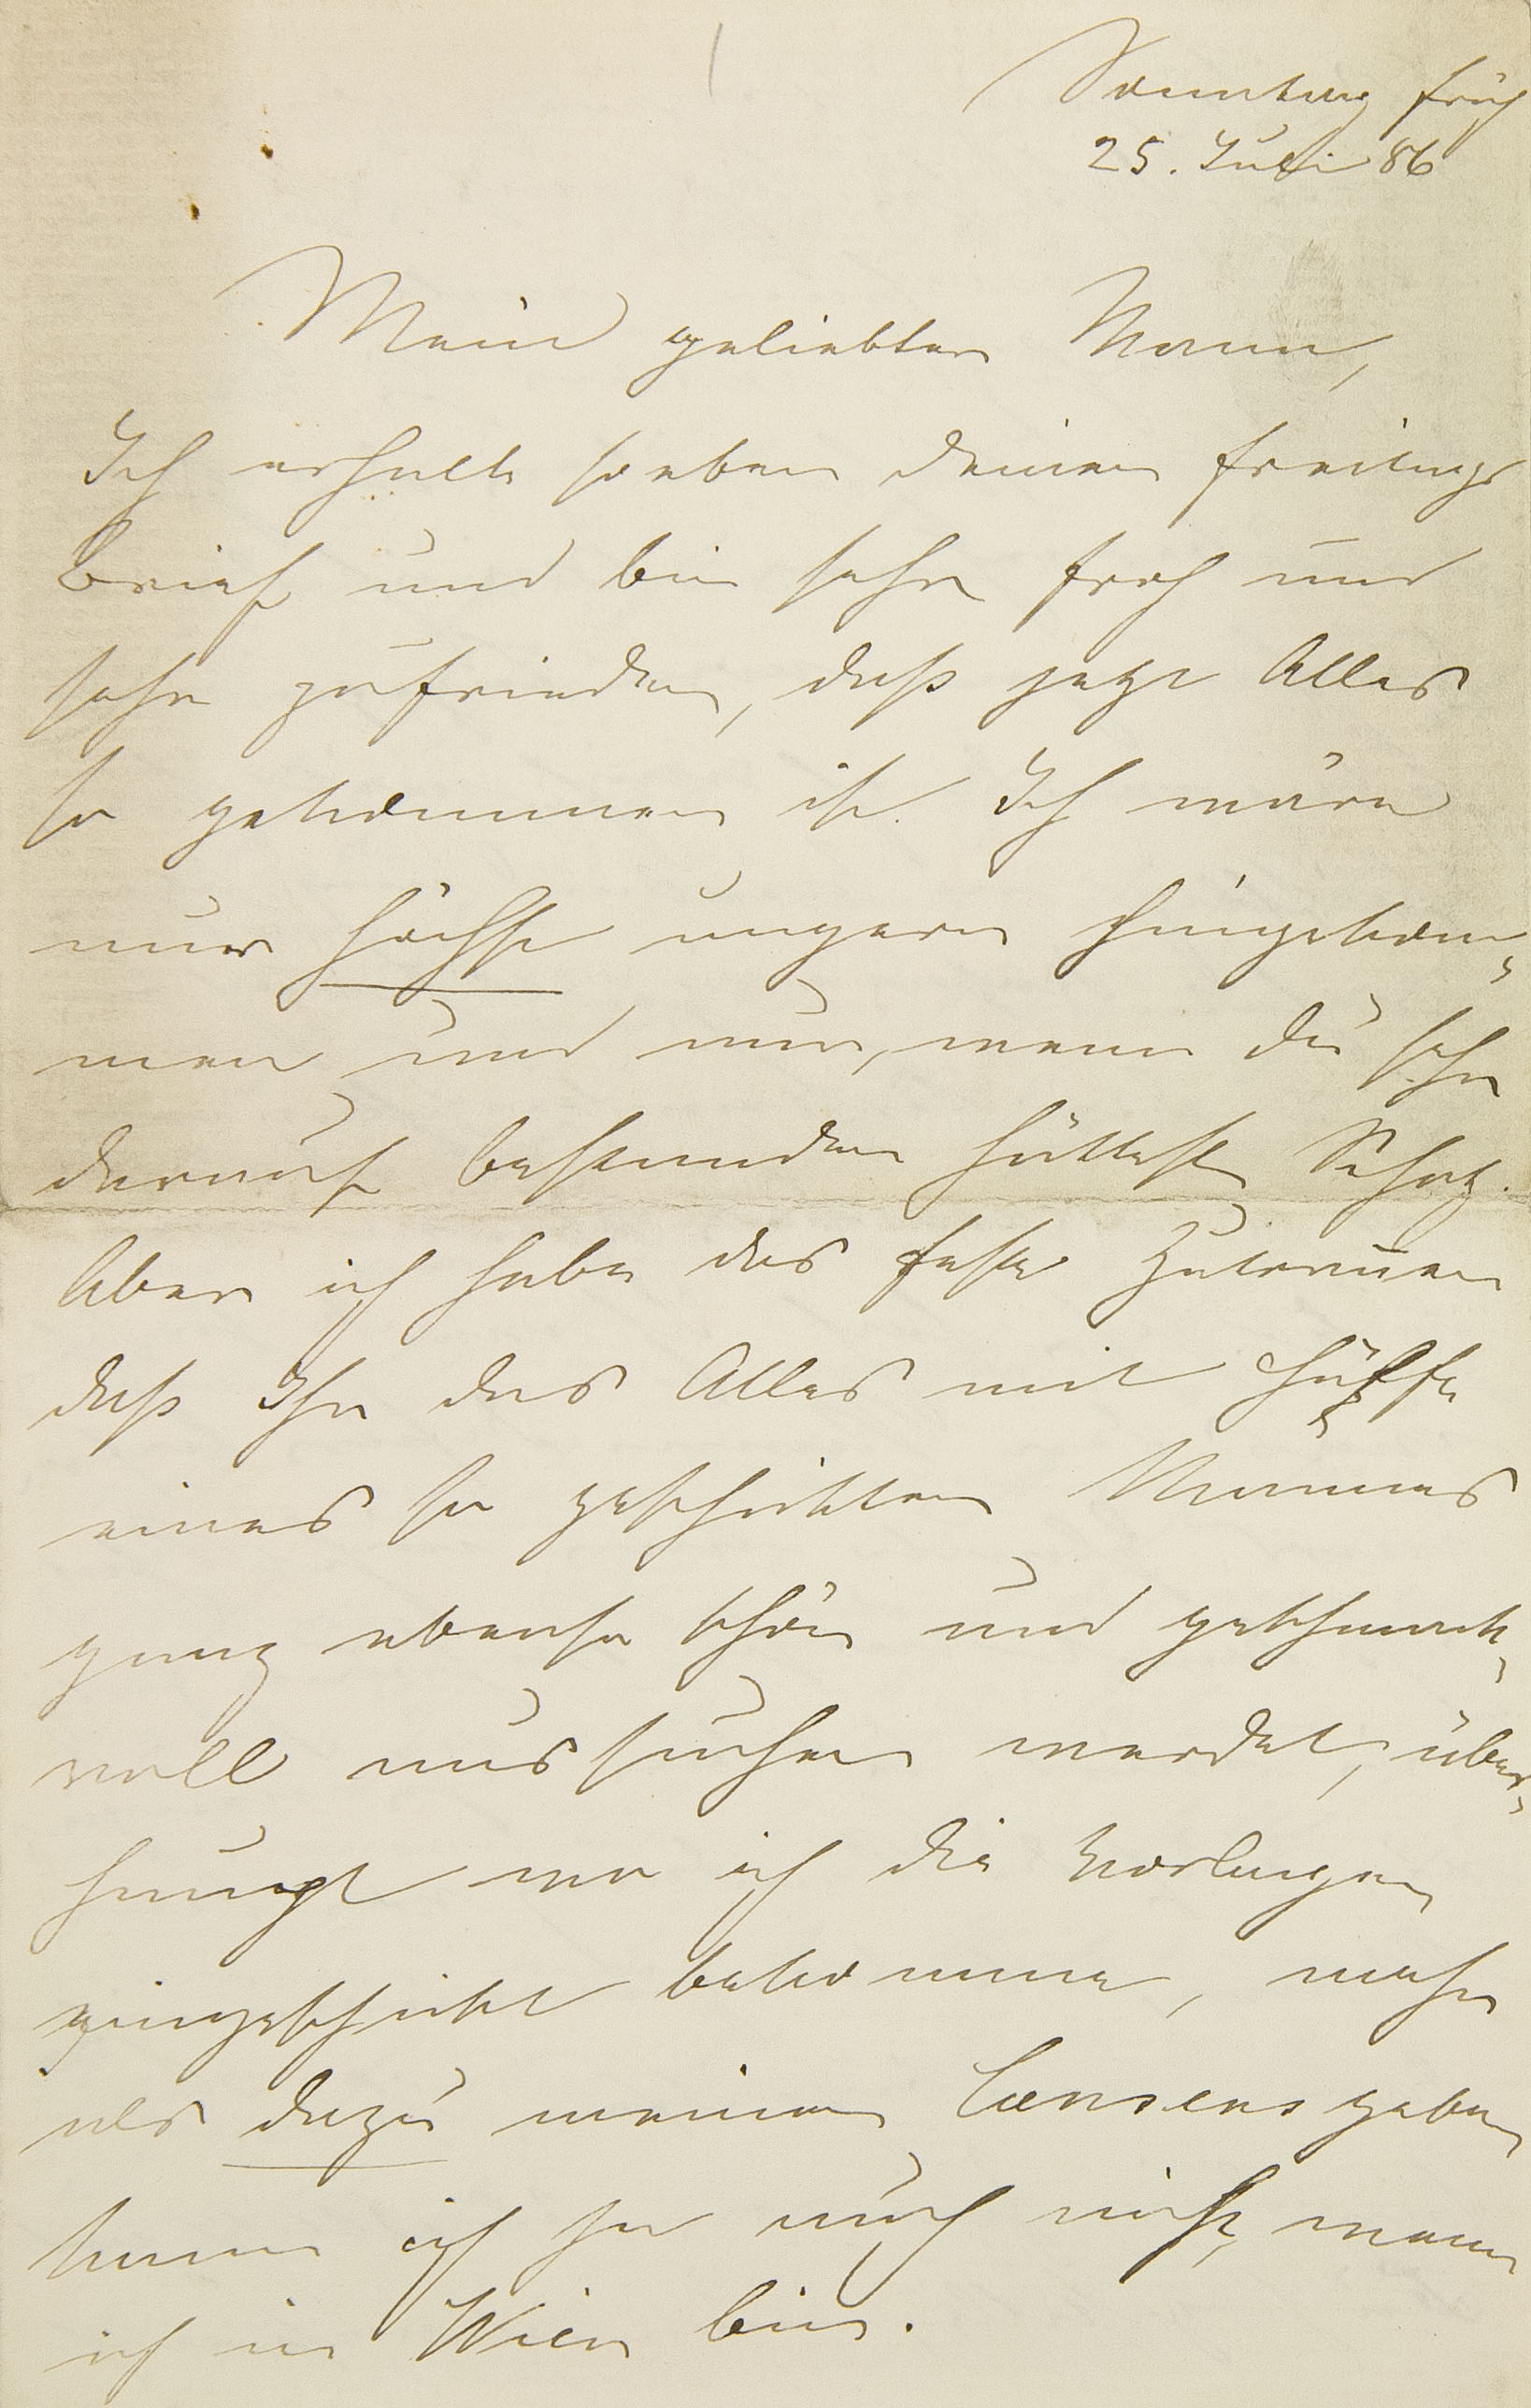 Sonntag früh
25. Juli 86
Mein geliebter Mann,
Ich erhalte soeben deinen Freitags
Brief und bin sehr froh und
sehr zufrieden, daß jetzt Alles
so gekommen ist. Ich wäre
nur höchst ungern hingekom-
men und nur, wenn du sehr
darauf bestanden hättest Schatz.
Aber ich habe das feste Zutrauen
daß Ihr das Alles mit Hülfe
eines so geschickten Mannes
ganz ebenso schön und geschmack-
voll aussuchen werdet, über-
haupt wo ich die Vorlagen
eingeschickt bekomme, mehr
als dazu meinen Consens geben
kann ich ja auch nicht, wenn
ich in Wien bin.